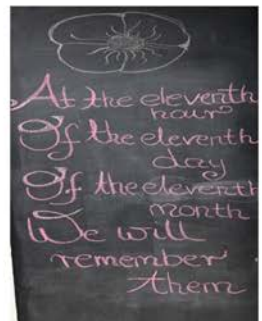 At the eleventh
hour
Of the eleventh
day
Of the eleventh
month
We will
remember
them